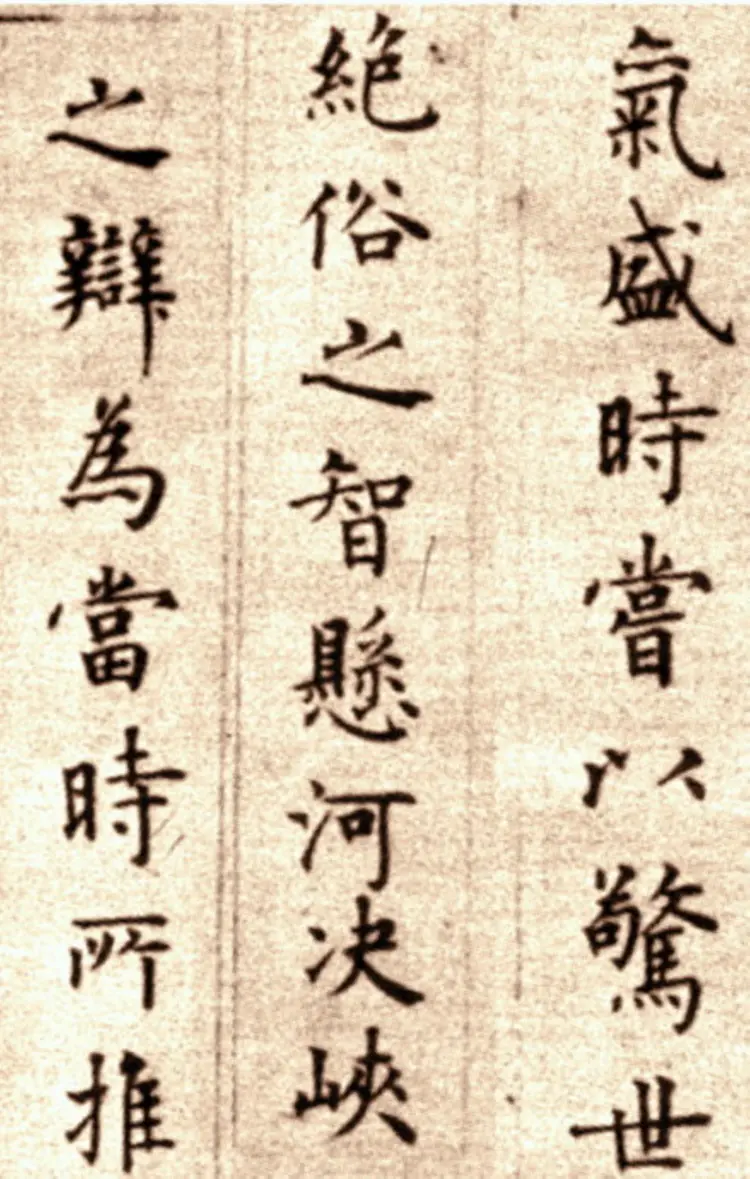 氣盛時嘗以驚世
絕俗之智懸河决峽
之辯為當時所推